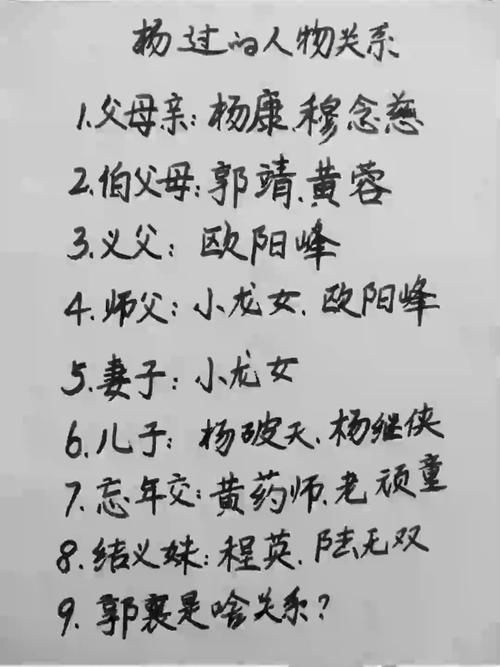 杨过的人物关系
1.父母亲:杨康.穆念慈
2.伯父母:郭靖.黄蓉
3.义父:欧阳峰
4.师父:小龙女.欧阳峰
5.妻子:小龙女
6.儿子:杨破天.杨继侠
7.忘年交:黄药师.老顽童
8.结义妹:程英.陆无双
9.郭襄是啥关系?